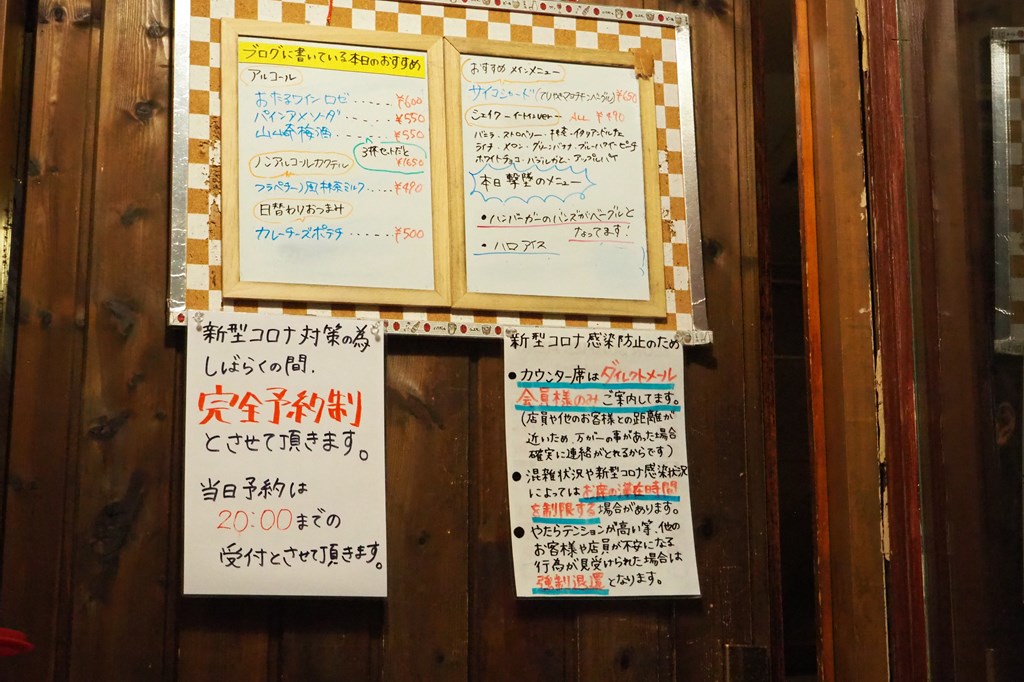 ブログに書いている本日のおすすめ
アルコール
おたるワイン ロゼ ..... ¥600
パインアメソーダ ...... ¥550
山崎梅酒 ...... ¥550
3杯セットだと
¥1650
ノンアルコールカクテル
フラペチーノ風抹茶ミルク ¥490
日替わりおつまみ
カレーチーズポテチ ...... ¥500
おすすめ メインメニュー
サイコシャード ¥650
シェイク ALL ¥490
バニラ・ストロベリー・抹茶・イタリアンドルチェ
ライチ・メロン・グリーンバナナ・ブルーハワイ・ピーチ
ホワイトチョコ・バブルガム・アップルパイ
本日撃墜のメニュー
・ハンバーガーのバンズがベーグルと
なってます!
・ハロアイス
新型コロナ対策の為
しばらくの間、
完全予約制
とさせて頂きます。
当日予約は
20:00までの
受付とさせて頂きます。
新型コロナ感染防止のため
●カウンター席はダイレクトメール
会員様のみご案内してます。
(店員や他のお客様との距離が
近いため、万が一の事があった場合
確実に連絡がとれるからです)
●混雑状況や新型コロナ感染状況
によってはお席の滞在時間
を制限する場合があります。
●やたらテンションが高い等、他の
お客様や店員が不安になる
行為が見受けられた場合は
強制退置となります。